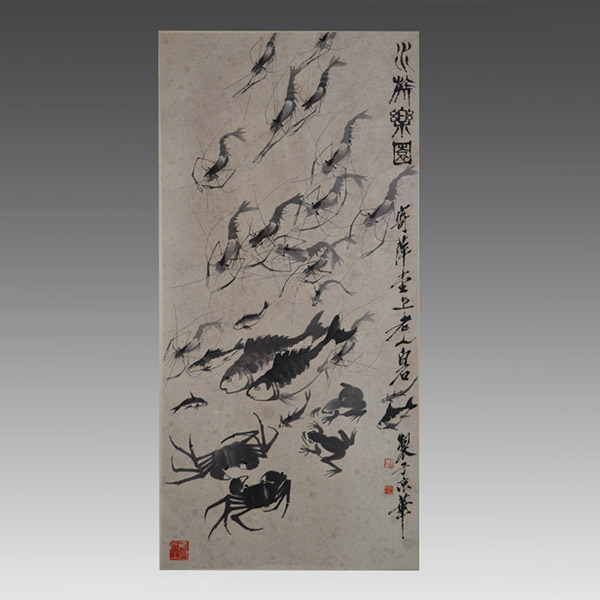 水族樂園
寄萍堂上老人白石
製于京華